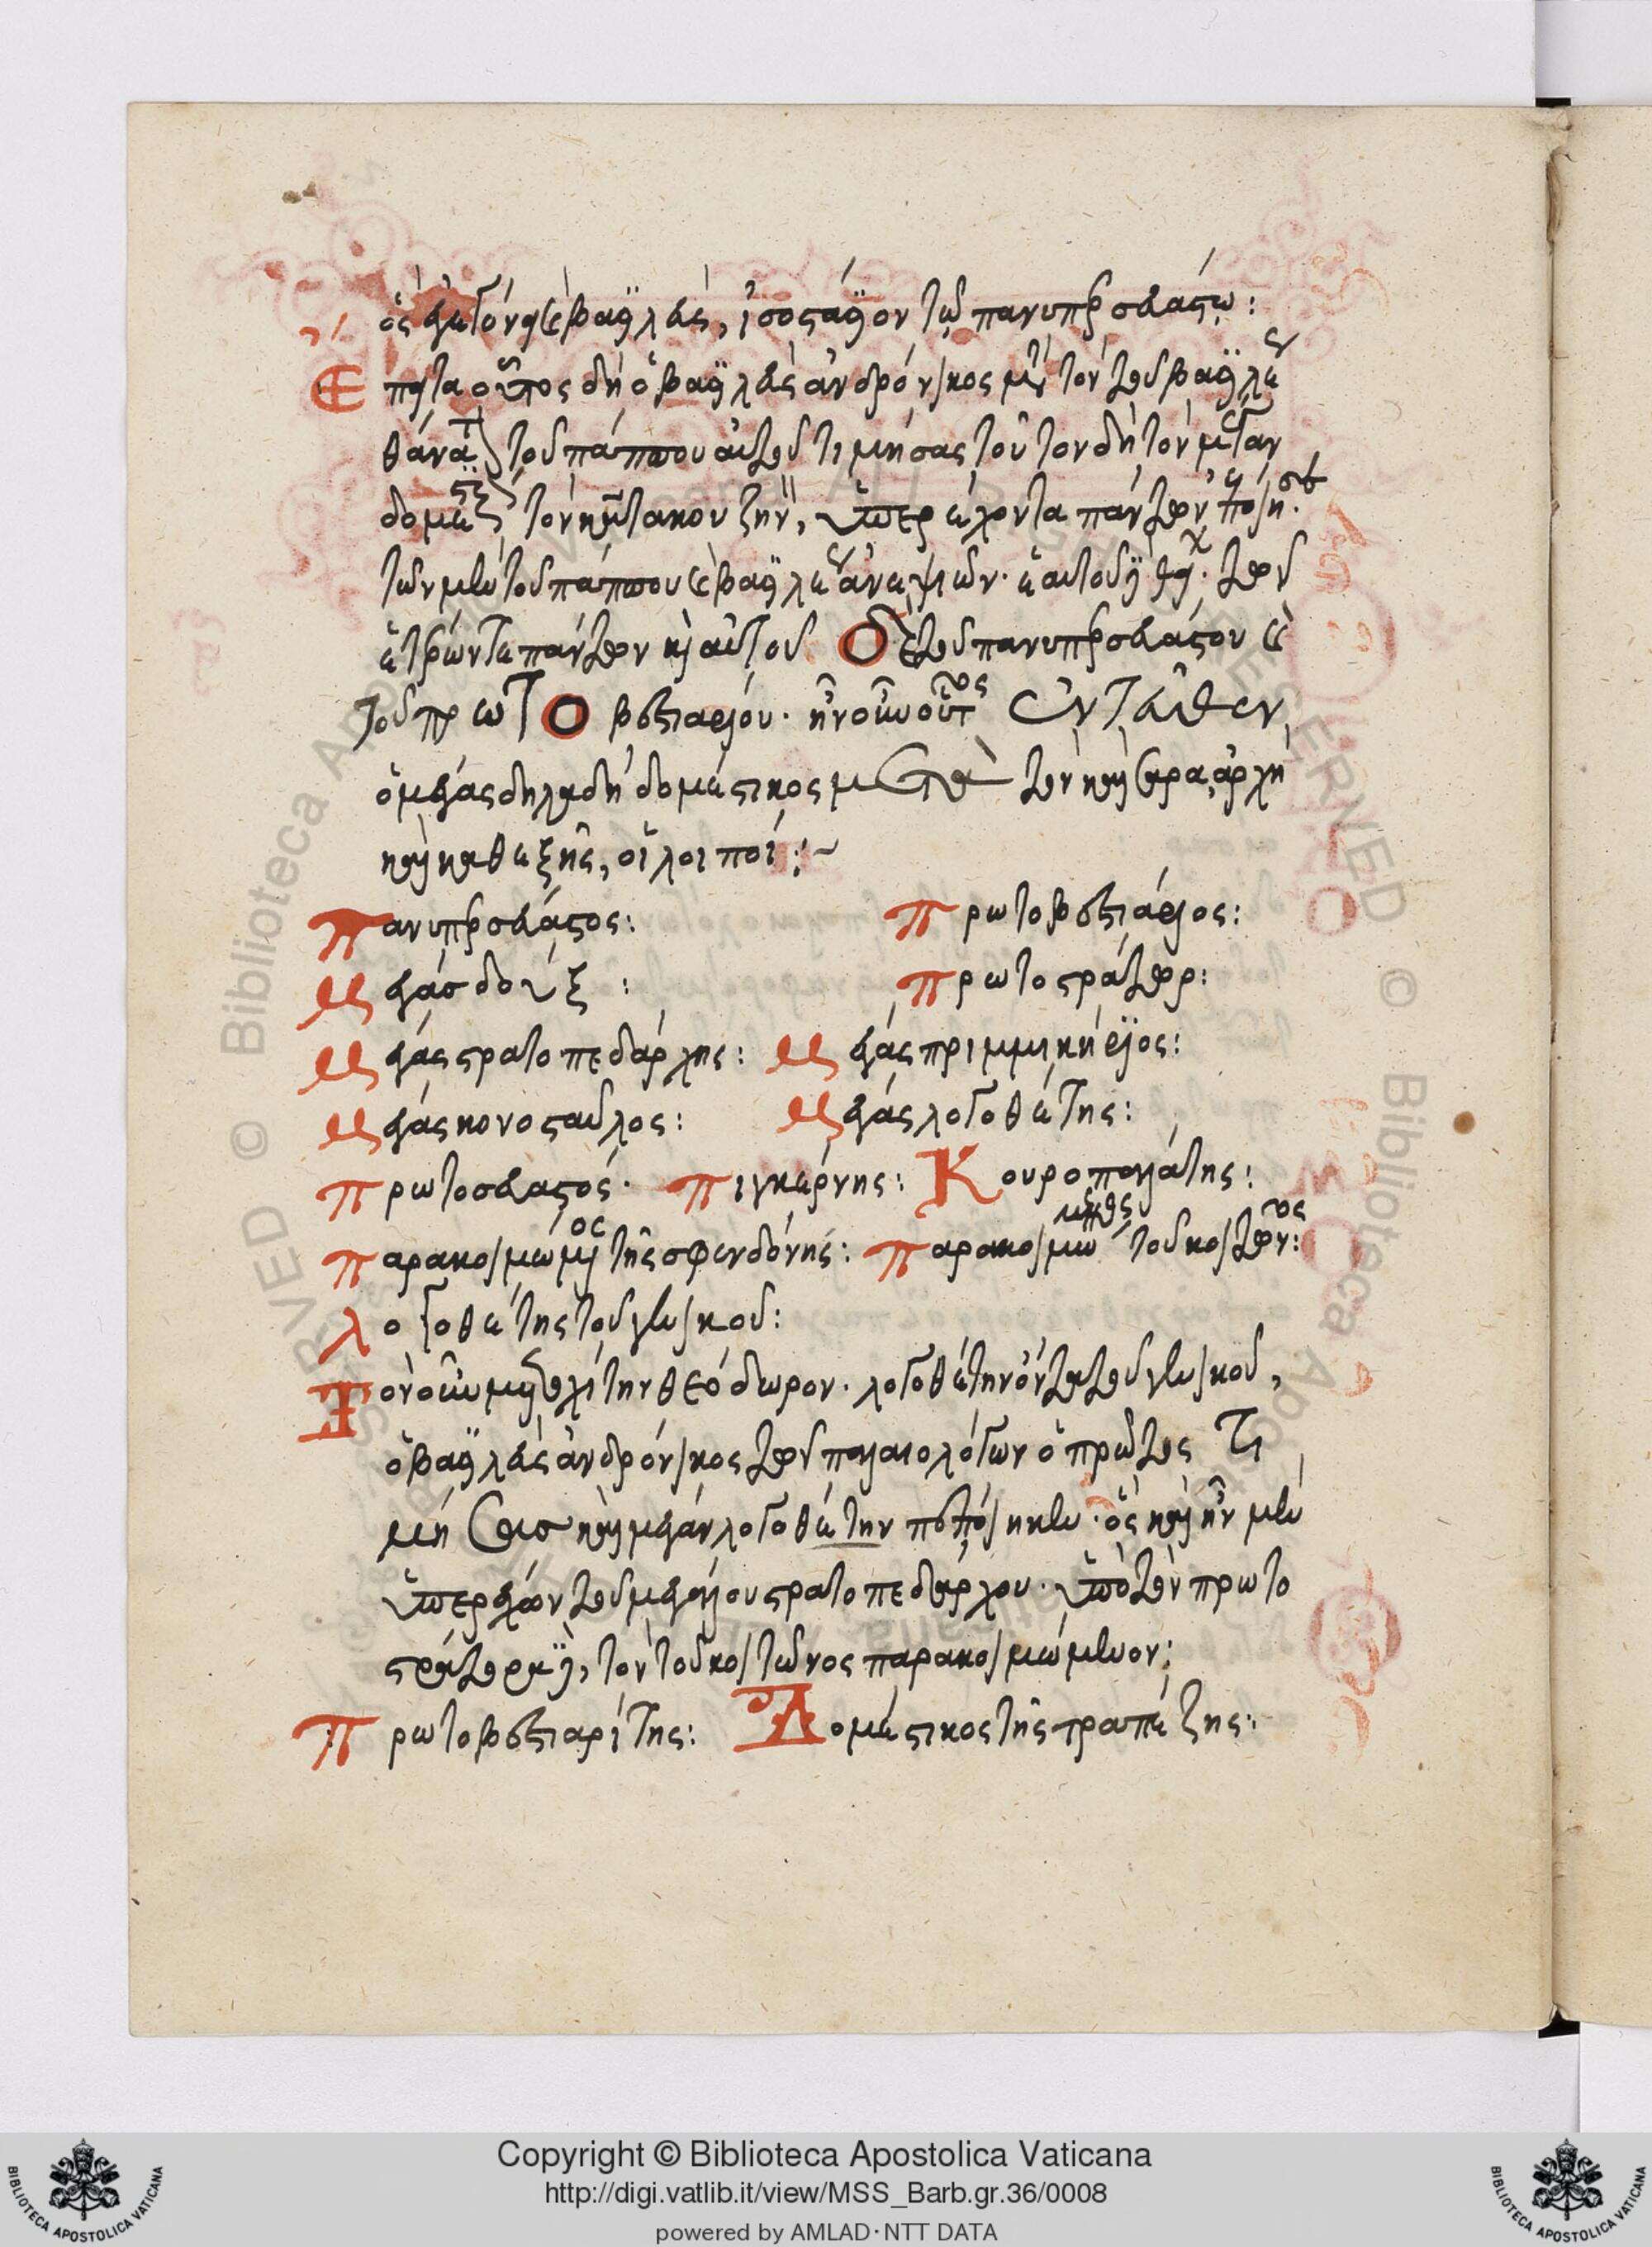 ὃς ἐγεγόνει βασιλεύς, ἰσοστάσιον τῷ πανυπερσεβάστῳ:
Ἔπειτα οὗτος δὴ ὁ βασιλεὺς ἀνδρόνικος μετὰ τὸν τοῦ βασιλέως
θάνατον τοῦ πάππου αὐτοῦ τιμήσας τοῦτον δὴ τὸν μέγαν
δομέστικον τὸν καντακουζηνὸν, ὑπερέχοντα πάντων ἐποίησε.
τῶν μὲν τοῦ πάππου βασιλέως ἀνεψιῶν. ἔτι
ἑτέρων τε πάντων καὶ αὐτοῦ δὲ τοῦ πανυπερσεβάστου καὶ
τοῦ πρωτοβεστιαρίου. ἦν οὖν οὗτος ἐντεῦθεν,
ὁ μέγας δηλαδὴ δομέστικος μετὰ τὸν καίσαρα, ἀρχὴ
καὶ καθεξῆς, οἱ λοιποί:~
Πανυπερσέβαστος: Πρωτοβεστιάριος:
Μέγας δούξ: Πρωτοστράτωρ:
Μέγας στρατοπεδάρχης: Μέγας πριμμικήριος:
Μέγας κονοσταῦλος: Μέγας λογοθέτης:
Πρωτοσέβαστος. Πιγκέρνης: Κουροπαλάτης:
Παρακοιμώμενος τῆς σφενδόνης: Παρακοιμώμενος τοῦ κοιτῶνος:
Λογοθέτης τοῦ γενικοῦ:
Τὸν οὖν μετοχίτην θεόδωρον. λογοθέτην ὄντα τοῦ γενικοῦ,
ὁ βασιλεὺς ἀνδρόνικος τῶν παλαιολόγων ὁ πρῶτος τι
μήσας καὶ μέγαν λογοθέτην πεποίηκεν. ὃς καὶ ἦν μὲν
ὑπερέχων τοῦ μεγάλου στρατοπεδάρχου. ὑπὸ τὸν πρωτο
στράτορα, τὸν τοῦ κοιτῶνος παρακοιμώμενον:
Πρωτοβεστιαρίτης: Δομέστικος τῆς τραπέζης:
Copyright © Biblioteca Apostolica Vaticana
http://digi.vatlib.it/view/MSS_Barb.gr.36/0008
powered by AMLAD·NTT DATA
BIBLIOTECA APOSTOLICA VATICANA
BIBLIOTECA APOSTOLICA VATICANA